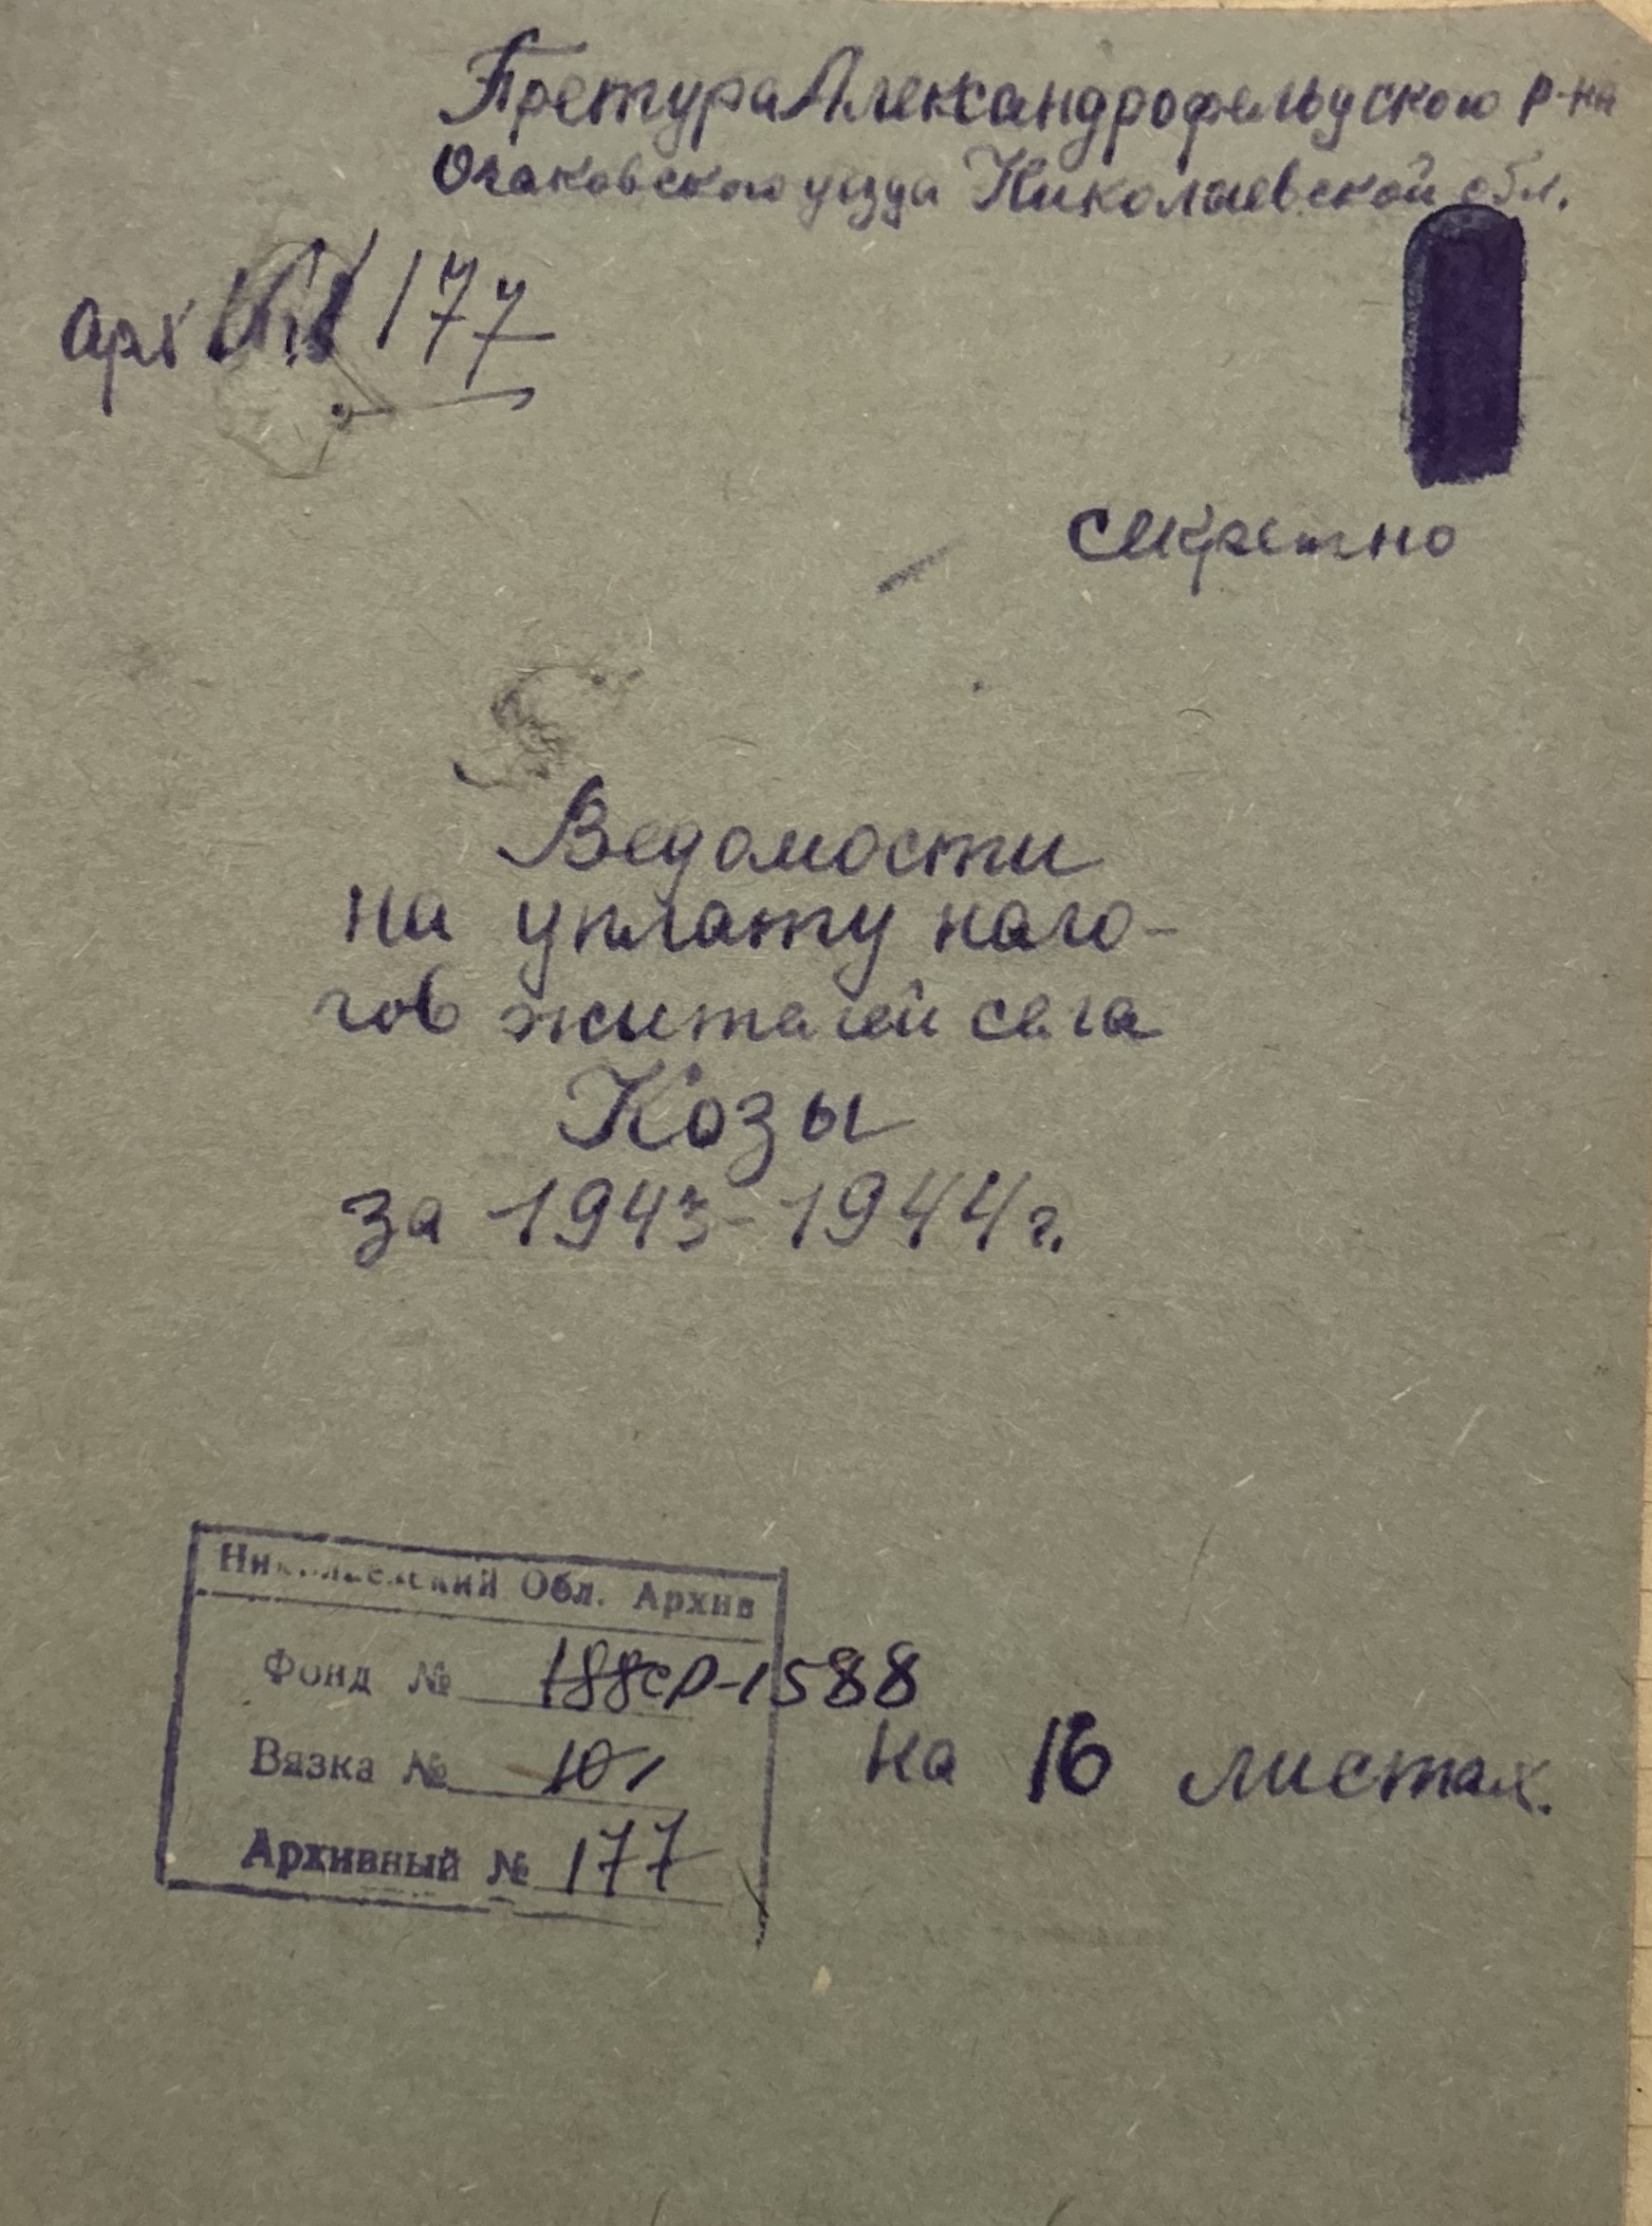 Претура Александрофельдского р-на
Очаковского уезда Николаевской обл.
арх 177
секретно
Ведомости
на уплату нало-
гов жителей села
Козы
за 1943-1944 г.
Николаевский Обл. Архив
Фонд № 188ср-1588
Вязка № 101
на 16 листах.
Архивный № 177